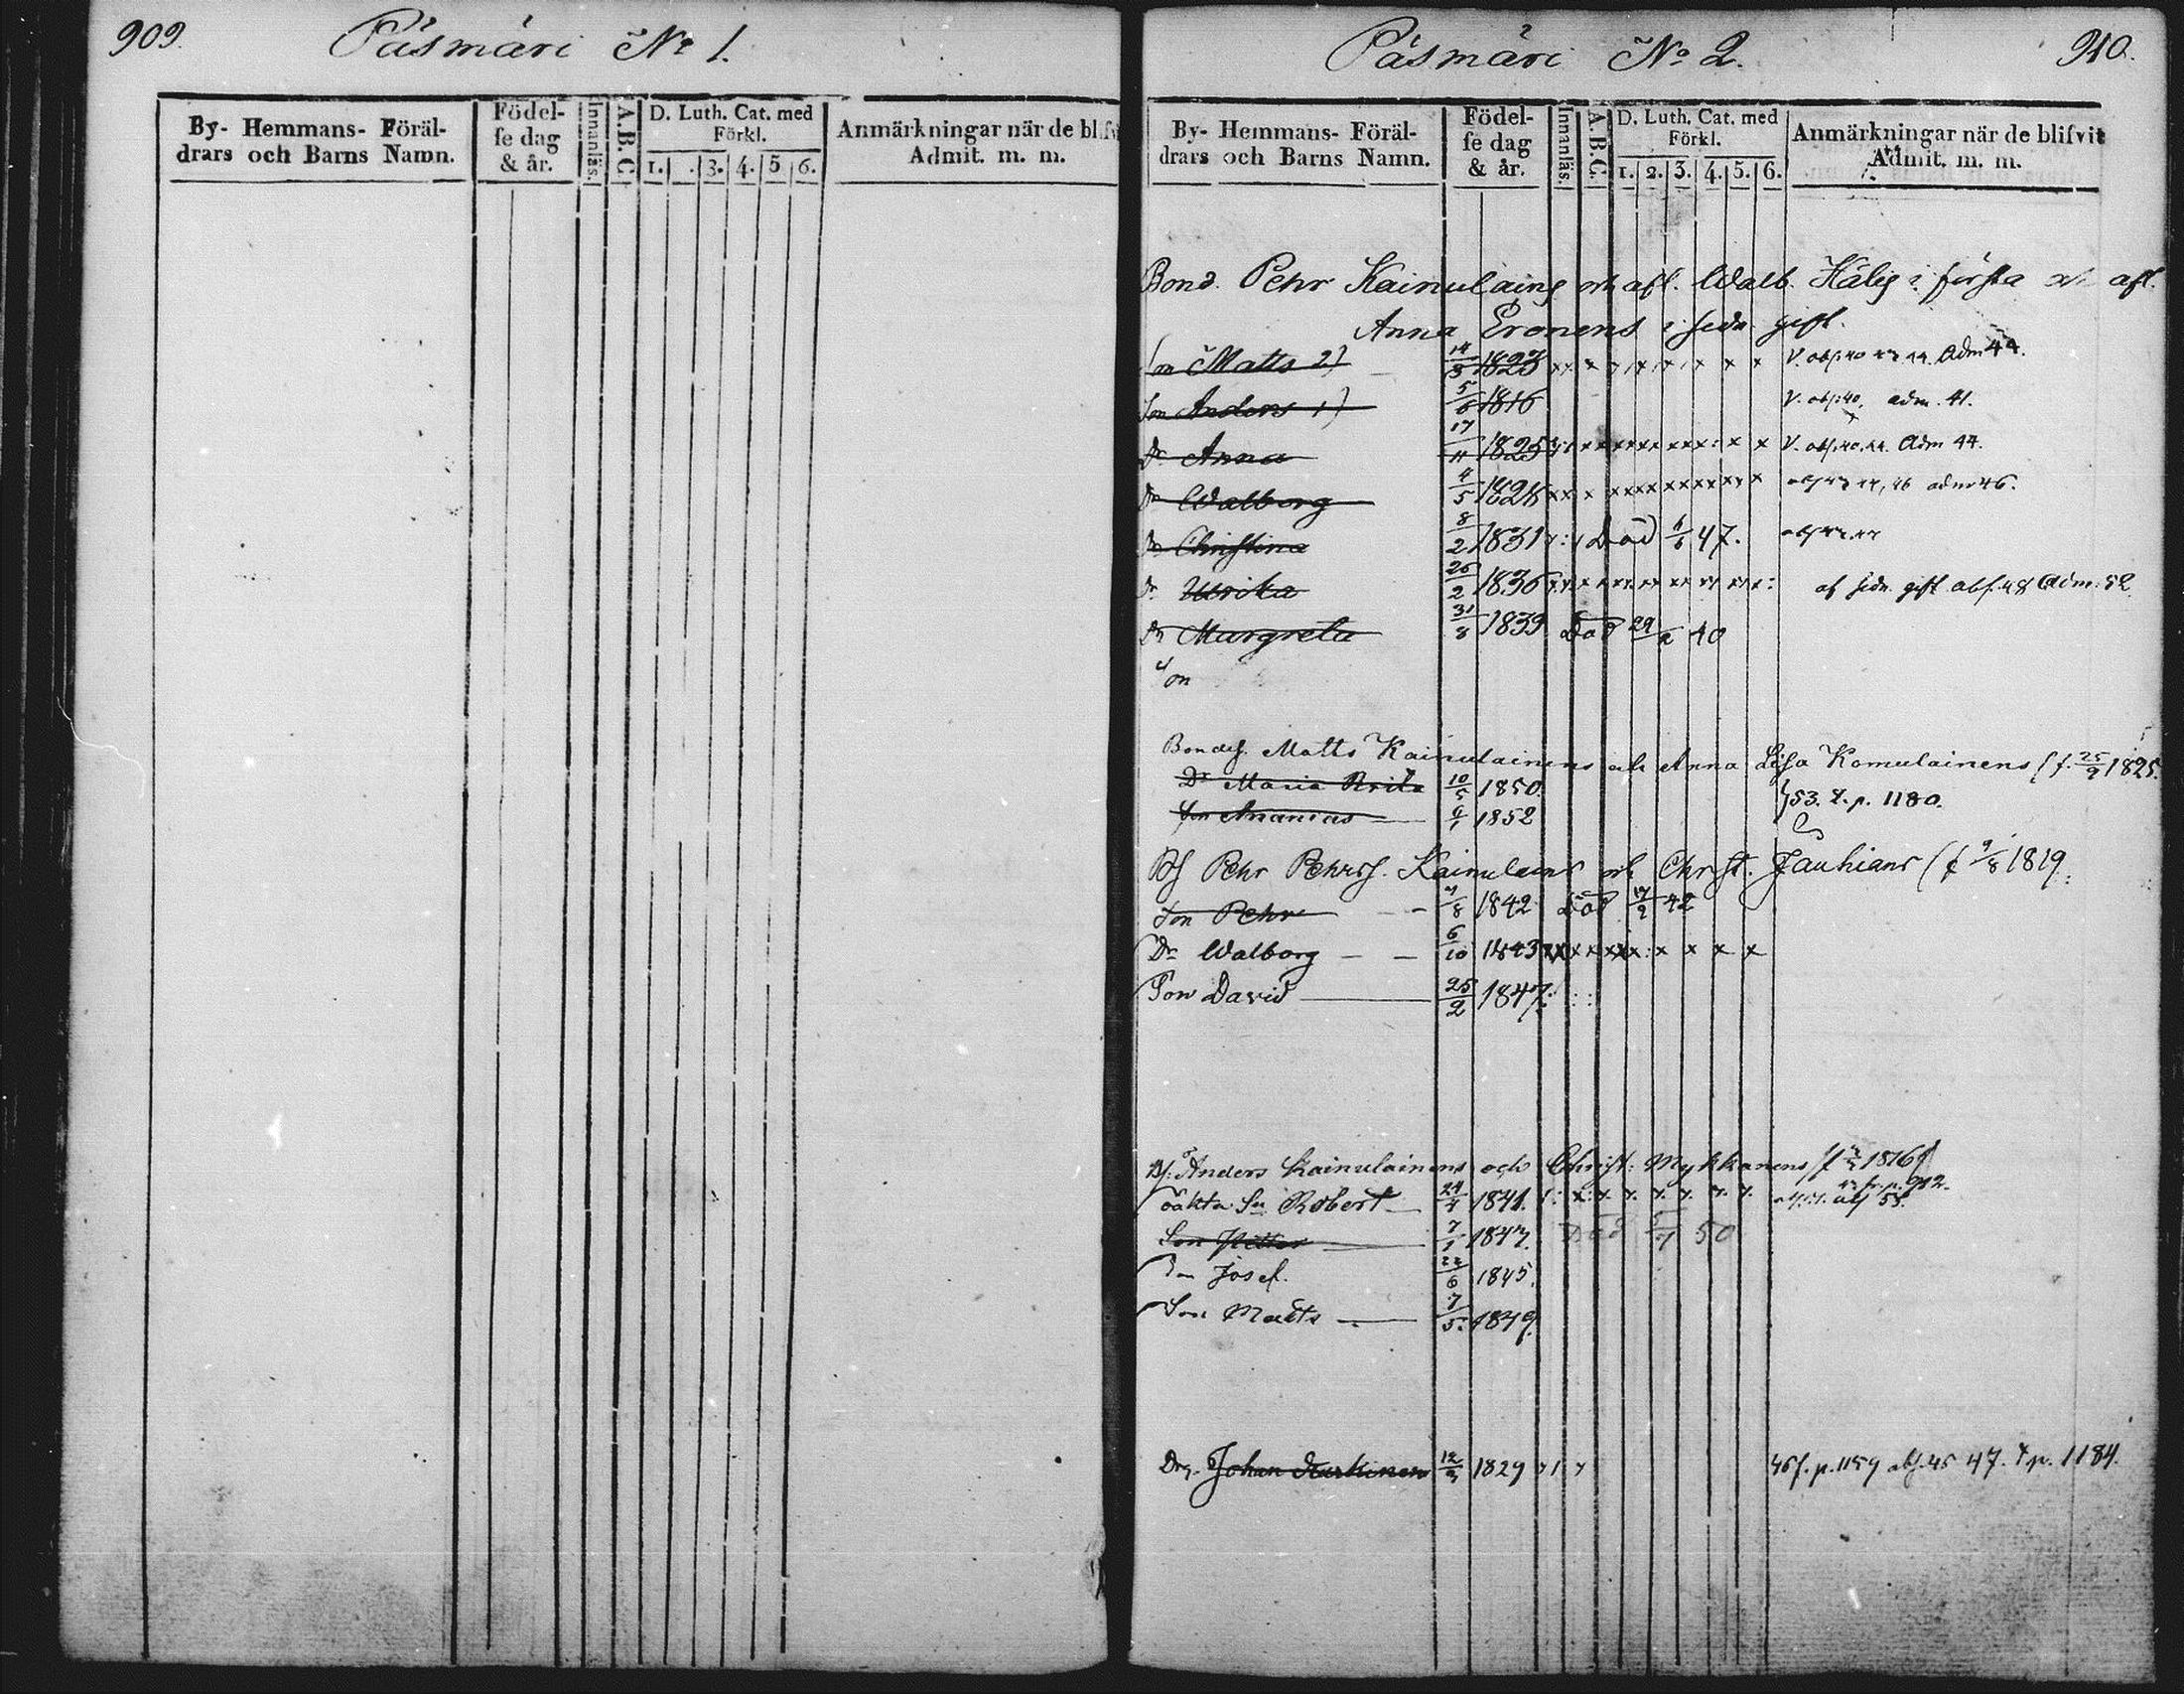 909.
Päsmäri No 1.
By- Hemmans- Föräl-
drars och Barns Namn.
Födel-
se dag
& år.
Innanläs.
A.B.C
D. Luth. Cat. med
Förkl.
1. . 3. 4. 5 6.
Anmärkningar när de blifv
Admit. m. m.
Päsmäri No 2.
910.
By- Hemmans- Föräl-
drars och Barns Namn.
Födel-
se dag
& år.
Innanläs.
A.B.C.
D. Luth. Cat. med
Förkl.
1. 2. 3. 4. 5. 6.
Anmärkningar när de blifvit
Admit. m. m.
Bond. Pehr Kainulains och afl. Walb. Hälig i första och afl.
Anna Eronens i sedn. gift.
Son Matts 2) 14/3 1823 V. abs: 40 Adm 44.
Son Anders 1) 5/6 1816 V. abs: 40. adm. 41.
Dr Anna 17/11 1825 V. abs. 40. 44. Adm 44.
Dr Walborg 4/5 1828 46 adm 46.
Dr Christina 8/2 1831 Död 6/6 47.
Dr Ulrika 26/2 1836 af sedn. gift abs. 48 Adm: 52
Dr Margreta 31/8 1839 Död 29/2 40
Son
Bondes. Matts Kainulainens och Anna Lisa Komulainens (f. 25/9 1825.
Dr Maria Brita 10/5 1850.
53. t. p. 1180.
Son Ananias 6/1 1852
Bs Pehr Pehrss. Kainulains och Christ. Jauhians (f 9/8 1819.
Son Pehr 4/8 1842 Död 17/9 42
Dr Walborg 6/10 1843
Son David 25/2 1847.
Bs: Anders Kainulainens och Christ: Mykkanens (f 1816)
oäkta Sn Robert 24/4 1841. fr. p. 912.
Son Petter 7/1 1847. Död 5/7 50
Son Josef. 22/6 1845.
Son Matts 7/5. 1849.
Drg. Johan Kurkinen 12/9 1829 46 f. p. 1159 abs. 45 47. t p. 1184.